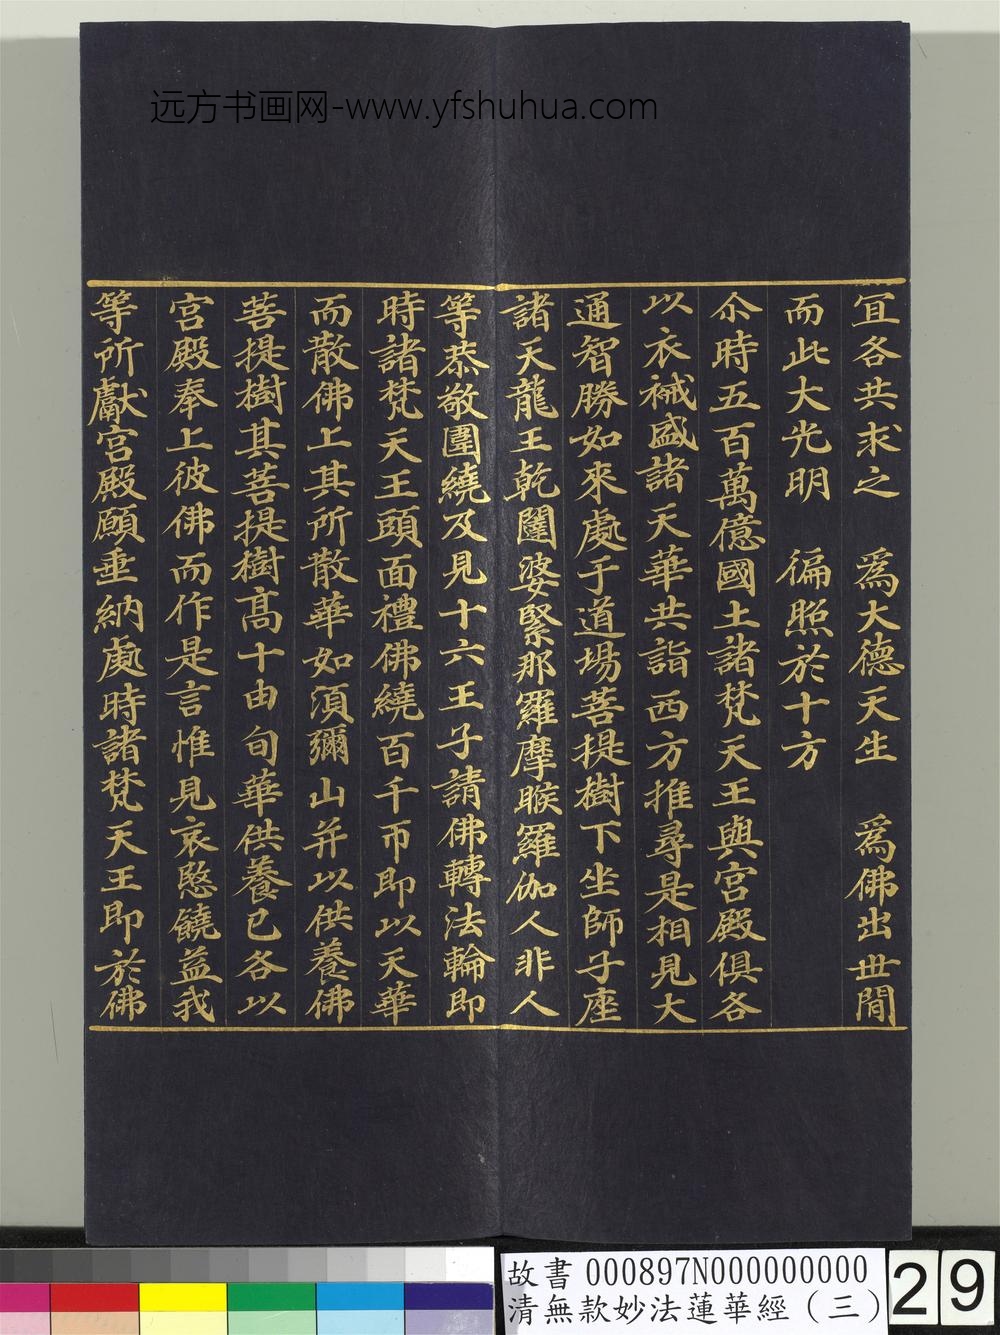 远方书画网-www.yfshuhua.com
冝各共求之　為大德天生　為佛出世閒
而此大光明　徧照於十方
尒時五百萬億國土諸梵天王與宮殿俱各
以衣祴盛諸天華共詣西方推尋是相見大
通智勝如來處于道場菩提樹下坐師子座
諸天龍王乾闥婆緊那羅摩睺羅伽人非人
等恭敬圍繞及見十六王子請佛轉法輪即
時諸梵天王頭面禮佛繞百千帀即以天華
而散佛上其所散華如湏彌山并以供養佛
菩提樹其菩提樹髙十由旬華供養已各以
宮殿奉上彼佛而作是言惟見哀愍饒益我
等所獻宮殿願垂納處時諸梵天王即於佛
故書 000897N000000000
清無款妙法蓮華經（三）
29